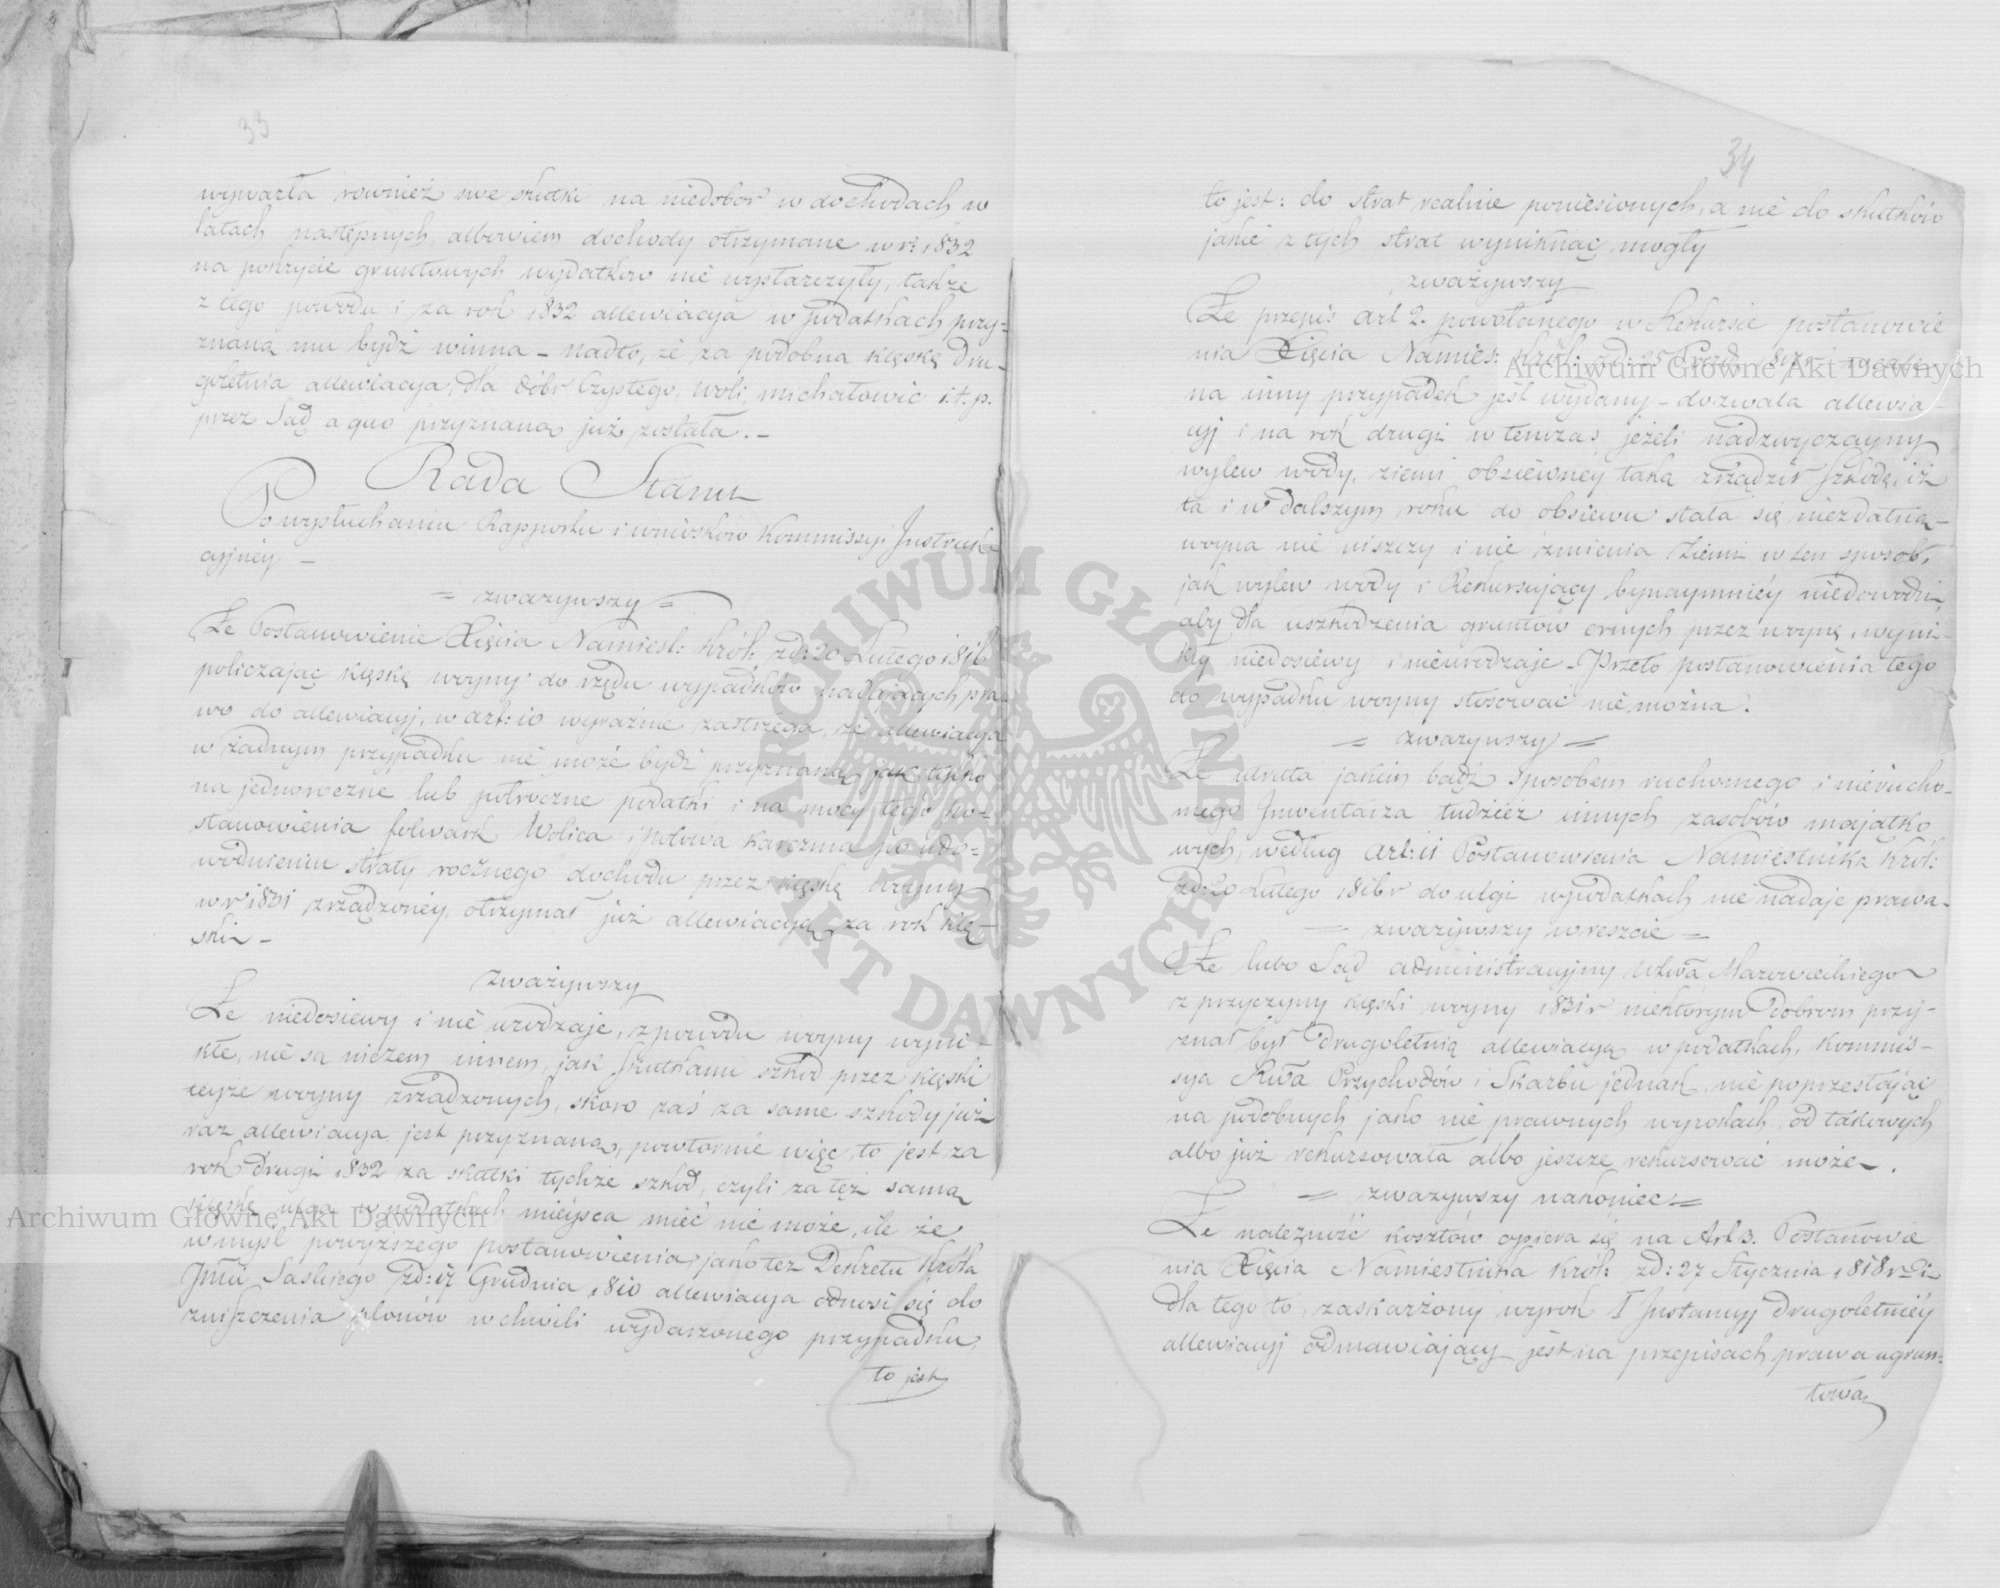 33
wywarła również swe skutki na niedobór w dochodach w
latach następnych, albowiem dochody otrzymane w r: 1832
na pokrycie gruntowych wydatków nie wystarczyły, także
z tego powodu i za rok 1832 allewiacya w podatkach przy-
znaną mu bydź winna – nadto, że za podobną klęskę dru-
goletnia allewiacya, dla dóbr Czystego, Woli, Michałowic i.t.p.
przez Sąd a quo przyznaną już została. –
Rada Stanu
Po wysłuchaniu Rapportu i wniosków Kommissyi Instruk-
cyjnéy –
= zważywszy =
Że Postanowienie Xięcia Namiest: Król: z d: 20 Lutego 1816
policzając klęskę woyny do rzędu wypadków nadających pra-
wo do allewiacyj, w art: 10 wyraźnie zastrzega, że allewiacya
w żadnym przypadku nie może bydź przyznaną jak tylko
na jednoroczne lub półroczne podatki i na mocy tego po-
stanowienia folwark Wolica i połowa karczma po udo-
wodnieniu straty rocznego dochodu przez klęskę woyny
w r 1831 zrządzonéy, otrzymał już allewiacyą za rok klę-
ski –
zważywszy
Że niedosiewy i nie urodzaje, z powodu woyny wyni-
kłe, nie są niczem innem, jak skutkami szkód przez klęski
teyże woyny zrządzonych, skoro zaś za same szkody już
raz allewiacya jest przyznaną, powtórnie więc to jest za
rok drugi 1832 za skutki tychże szkód, czyli za tęż samą
klęskę ulga w podatkach mieysca mieć nie może, ile że
w myśl powyższego postanowienia, jako też Dekretu Króla
Jmci Saskiego z d: 17 Grudnia 1810 allewiacya odnosi się do
zniszczenia plonów w chwili wydarzonego przypadku,
to jest
34
to jest: do strat realnie poniesionych, a nie do skutków
jakie z tych strat wyniknąć mogły
zważywszy
Że przepis art 2. powołanego w Rekursie postanowie
nia Xięcia Namies: Król: z d: 25
na inny przypadek jest wydany – dozwala allewia-
cyj i na rok drugi wtenczas, jeżeli nadzwyczayny
wylew wody, ziemi obsiewnéy taką zrządził szkodę, iż
ta i w dalszym roku do obsiewu stała się niezdatną –
woyna nie niszczy i nie zmienia ziemi w ten sposób,
jak wylew wody i Rekursujący bynaymniéy niedowodzi,
aby dla uszkodzenia gruntów ornych przez woynę, wyni-
kły niedosiewy i nieurodzaje – Przeto postanowienia tego
do wypadku woyny stosować nie można.
= zważywszy =
Że utrata jakim bądź sposobem ruchomego i nierucho-
mego Inwentarza tudzież innych zasobów majątko
wych, według art: 11 Postanowienia Namiestnika Król:
z d: 20 Lutego 1816 r do ulgi w podatkach nie nadaje prawa –
= zważywszy wreszcie =
Że lubo Sąd administracyjny Wztwa Mazowieckiego
z przyczyny klęski woyny 1831 r niektórym dobrom przy-
znał był drugoletnią allewiacyą w podatkach, Kommis-
sya Rwa Przychodów i Skarbu jednak nie poprzestając
na podobnych jako nie prawnych wyrokach, od takowych
albo już rekursowała albo jeszcze rekursować może.
= zważywszy nakoniec =
Że należność kosztów opiera się na Art 3. Postanowie
nia Xięcia Namiestnika Król: z d: 27 Stycznia 1818 r
dla tego to, zaskarżony wyrok I Instancyj drugoletniéy
allewiacyj odmawiający jest na przepisach prawa ugrun-
towa
Archiwum Główne Akt Dawnych
Archiwum Główne Akt Dawnych
ARCHIWUM GŁÓWNE AKT DAWNYCH